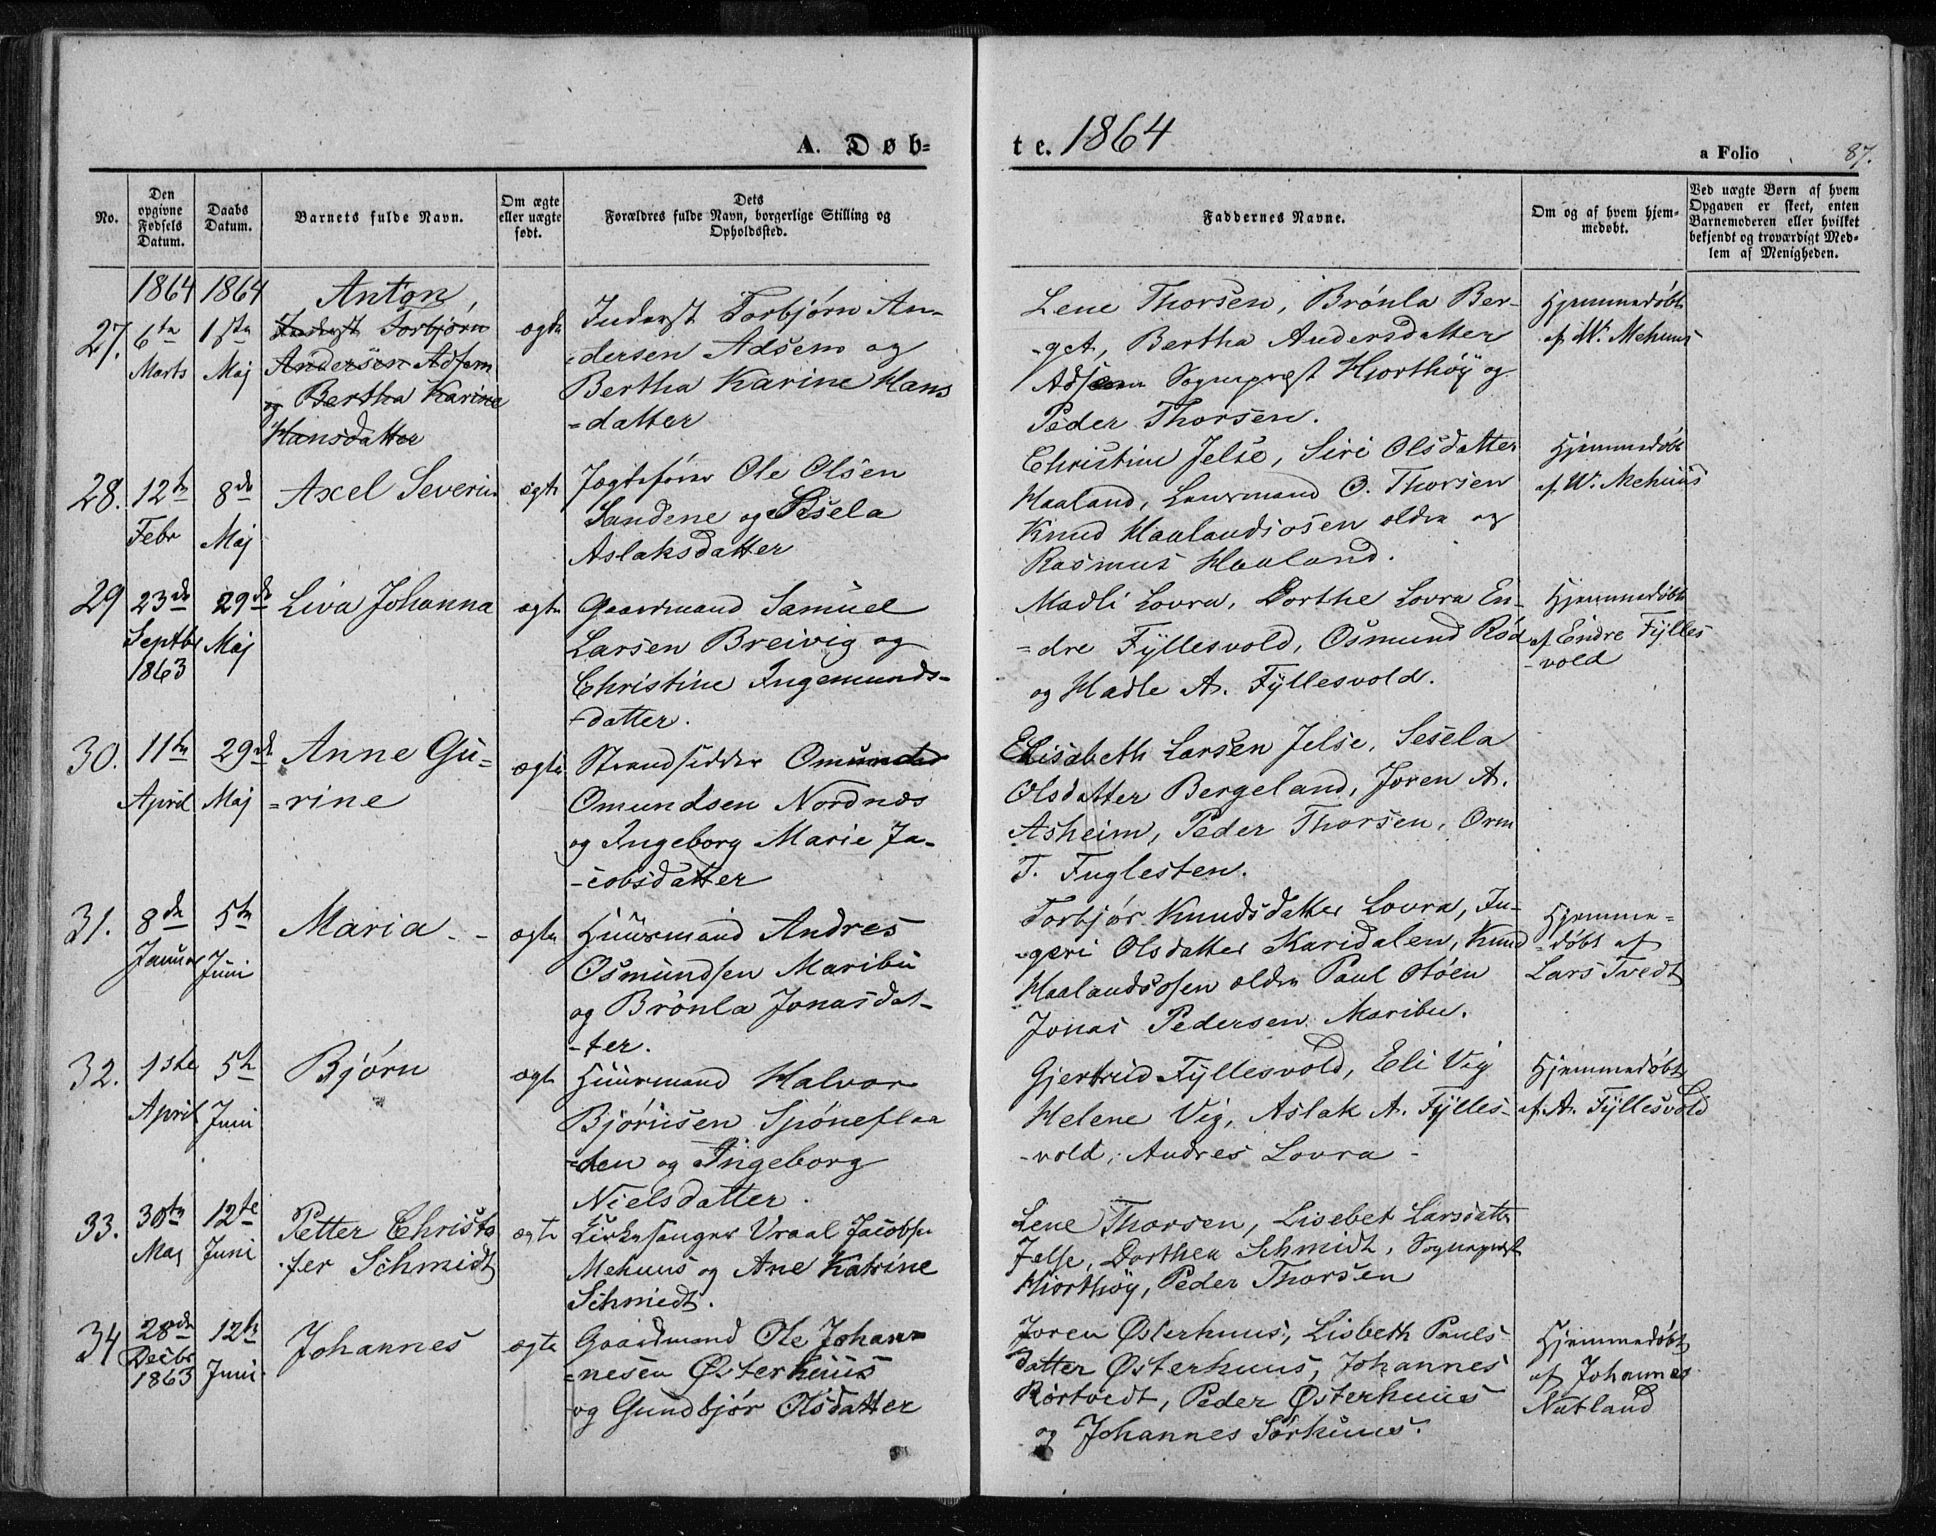 A. Døb-
te. 1864
a Folio 87.
No.
Den opgivne Fødsels Datum.
Daabs Datum.
Barnets fulde Navn.
Om ægte eller uægte født.
Dets Forældres fulde Navn, borgerlige Stilling og Opholdssted.
Faddernes Navne.
Om og af hvem hjem-
medøbt.
Ved uægte Børn af hvem
Opgaven er skeet, enten
Barnemoderen eller hvilket
bekjendt og troværdigt Med-
lem af Menigheden.
1864 1864
27. 6te Marts
1ste Maj
Anton,
Inderst Torbjørn
Andersen Adsem
og Bertha Karine
Hansdatter
ægte
Inderst Torbjørn An-
-dersen Adsem og
Bertha Karine Hans
=datter
Lene Thorsen, Brønla Ber-
-get, Bertha Andersdatter
Adsem Sognepræst Hjorthöy og
Peder Thorsen.
Hjemmedøbt
af W. Mehuus
28. 12te Febr
8de Maj
Axel Severin
ægte
Jægtefører Ole Olsen
Sandene og Sesela
Aslaksdatter
Christine Jelse, Siri Olsdatter
Haaland, Lensmand O. Thorsen
Knud Haalandsosen eldre og
Rasmus Haaland.
Hjemmedøbt
af W. Mehuus
29 23de Septbr 1863
29de Maj
Liva Johanna
ægte
Gaardmand Samuel
Larsen Breivig og
Christine Ingemunds-
-datter.
Madli Lovra, Dorthe Lovra En-
=dre Fyllesvold, Osmund Rød
og Hadle A. Fyllesvold.
Hjemmedøbt
af Endre Fylles
-vold
30. 11te April
29de Maj
Anne Gu-
=rine
ægte
Strandsidder Omund
Omundsen Nordnæs
og Ingeborg Marie Ja-
-cobsdatter
Elisabeth Larsen Jelse, Sesela
Olsdatter Bergeland, Joren A.
Asheim, Peder Thorsen, Orm
T. Fuglesten.
31. 8de Januar
5te Juni
Maria
ægte
Huusmand Andres
Osmundsen Maribu
og Brønla Jonasdat-
-ter.
Torbjør Knudsdatter Lovra, In-
-geri Olsdatter Karidalen, Knud
Haalandsosen eldre Paul Støen
Jonas Pedersen Maribu.
Hjemme=
=døbt af
Lars Tvedt
32. 1ste April
5te Juni
Bjørn
ægte
Huusmand Halvor
Bjørnsen Tjöneflaa
=den og Ingeborg
Nielsdatter.
Gjertrud Fyllesvold, Eli Vig
Helene Vig, Aslak A. Fylles-
-vold, Andres Lovra -
Hjemmedøbt
af A. Fyllesvold
33. 30te Maj
12te Juni
Petter Christo
-fer Schmidt
ægte
Kirkesanger Vraal Jacobsen
Mehuus og Ane Katrine
Schmidt.
Lene Thorsen, Lisebet Larsdatter
Jelse, Dorthea Schmidt, Sognepræst
Hjorthöy, Peder Thorsen
34 28de Decbr 1863
12te Juni
Johannes
ægte
Gaardmand Ole Johan-
=nesen Østerhuus
og Gundbjør Olsdatter
Joren Østerhuus, Lisbeth Pauls
datter Østerhuus, Johannes
Rörtvedt, Peder Østerhuus
og Johannes Sørhuus.
Hjemmedøbt
af Johannes
Natland